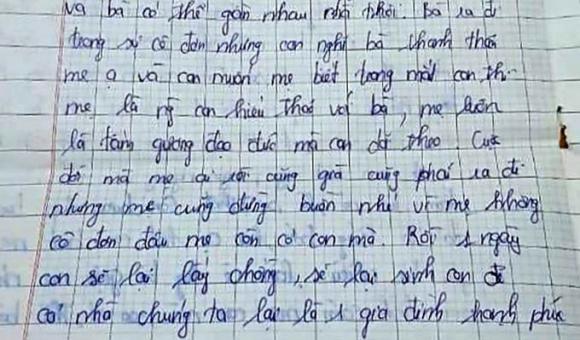 và bà có thể gần nhau nhà thôi. Bà ra đi
trong sự cô đơn nhưng con nghĩ bà thanh thản
mẹ ạ và con muốn mẹ biết trong mắt con thì
mẹ là ng con hiếu thảo với bà, mẹ luôn
là tấm gương đạo đức mà con dõi theo. Cuộc
đời mà mẹ ai rồi cũng già cũng phải ra đi
nhưng mẹ cũng đừng buồn nhé vì mẹ không
cô đơn đâu mẹ còn có con mà. Rồi 1 ngày
con sẽ lại lấy chồng, sẽ lại sinh con để
cả nhà chúng ta lại là 1 gia đình hạnh phúc